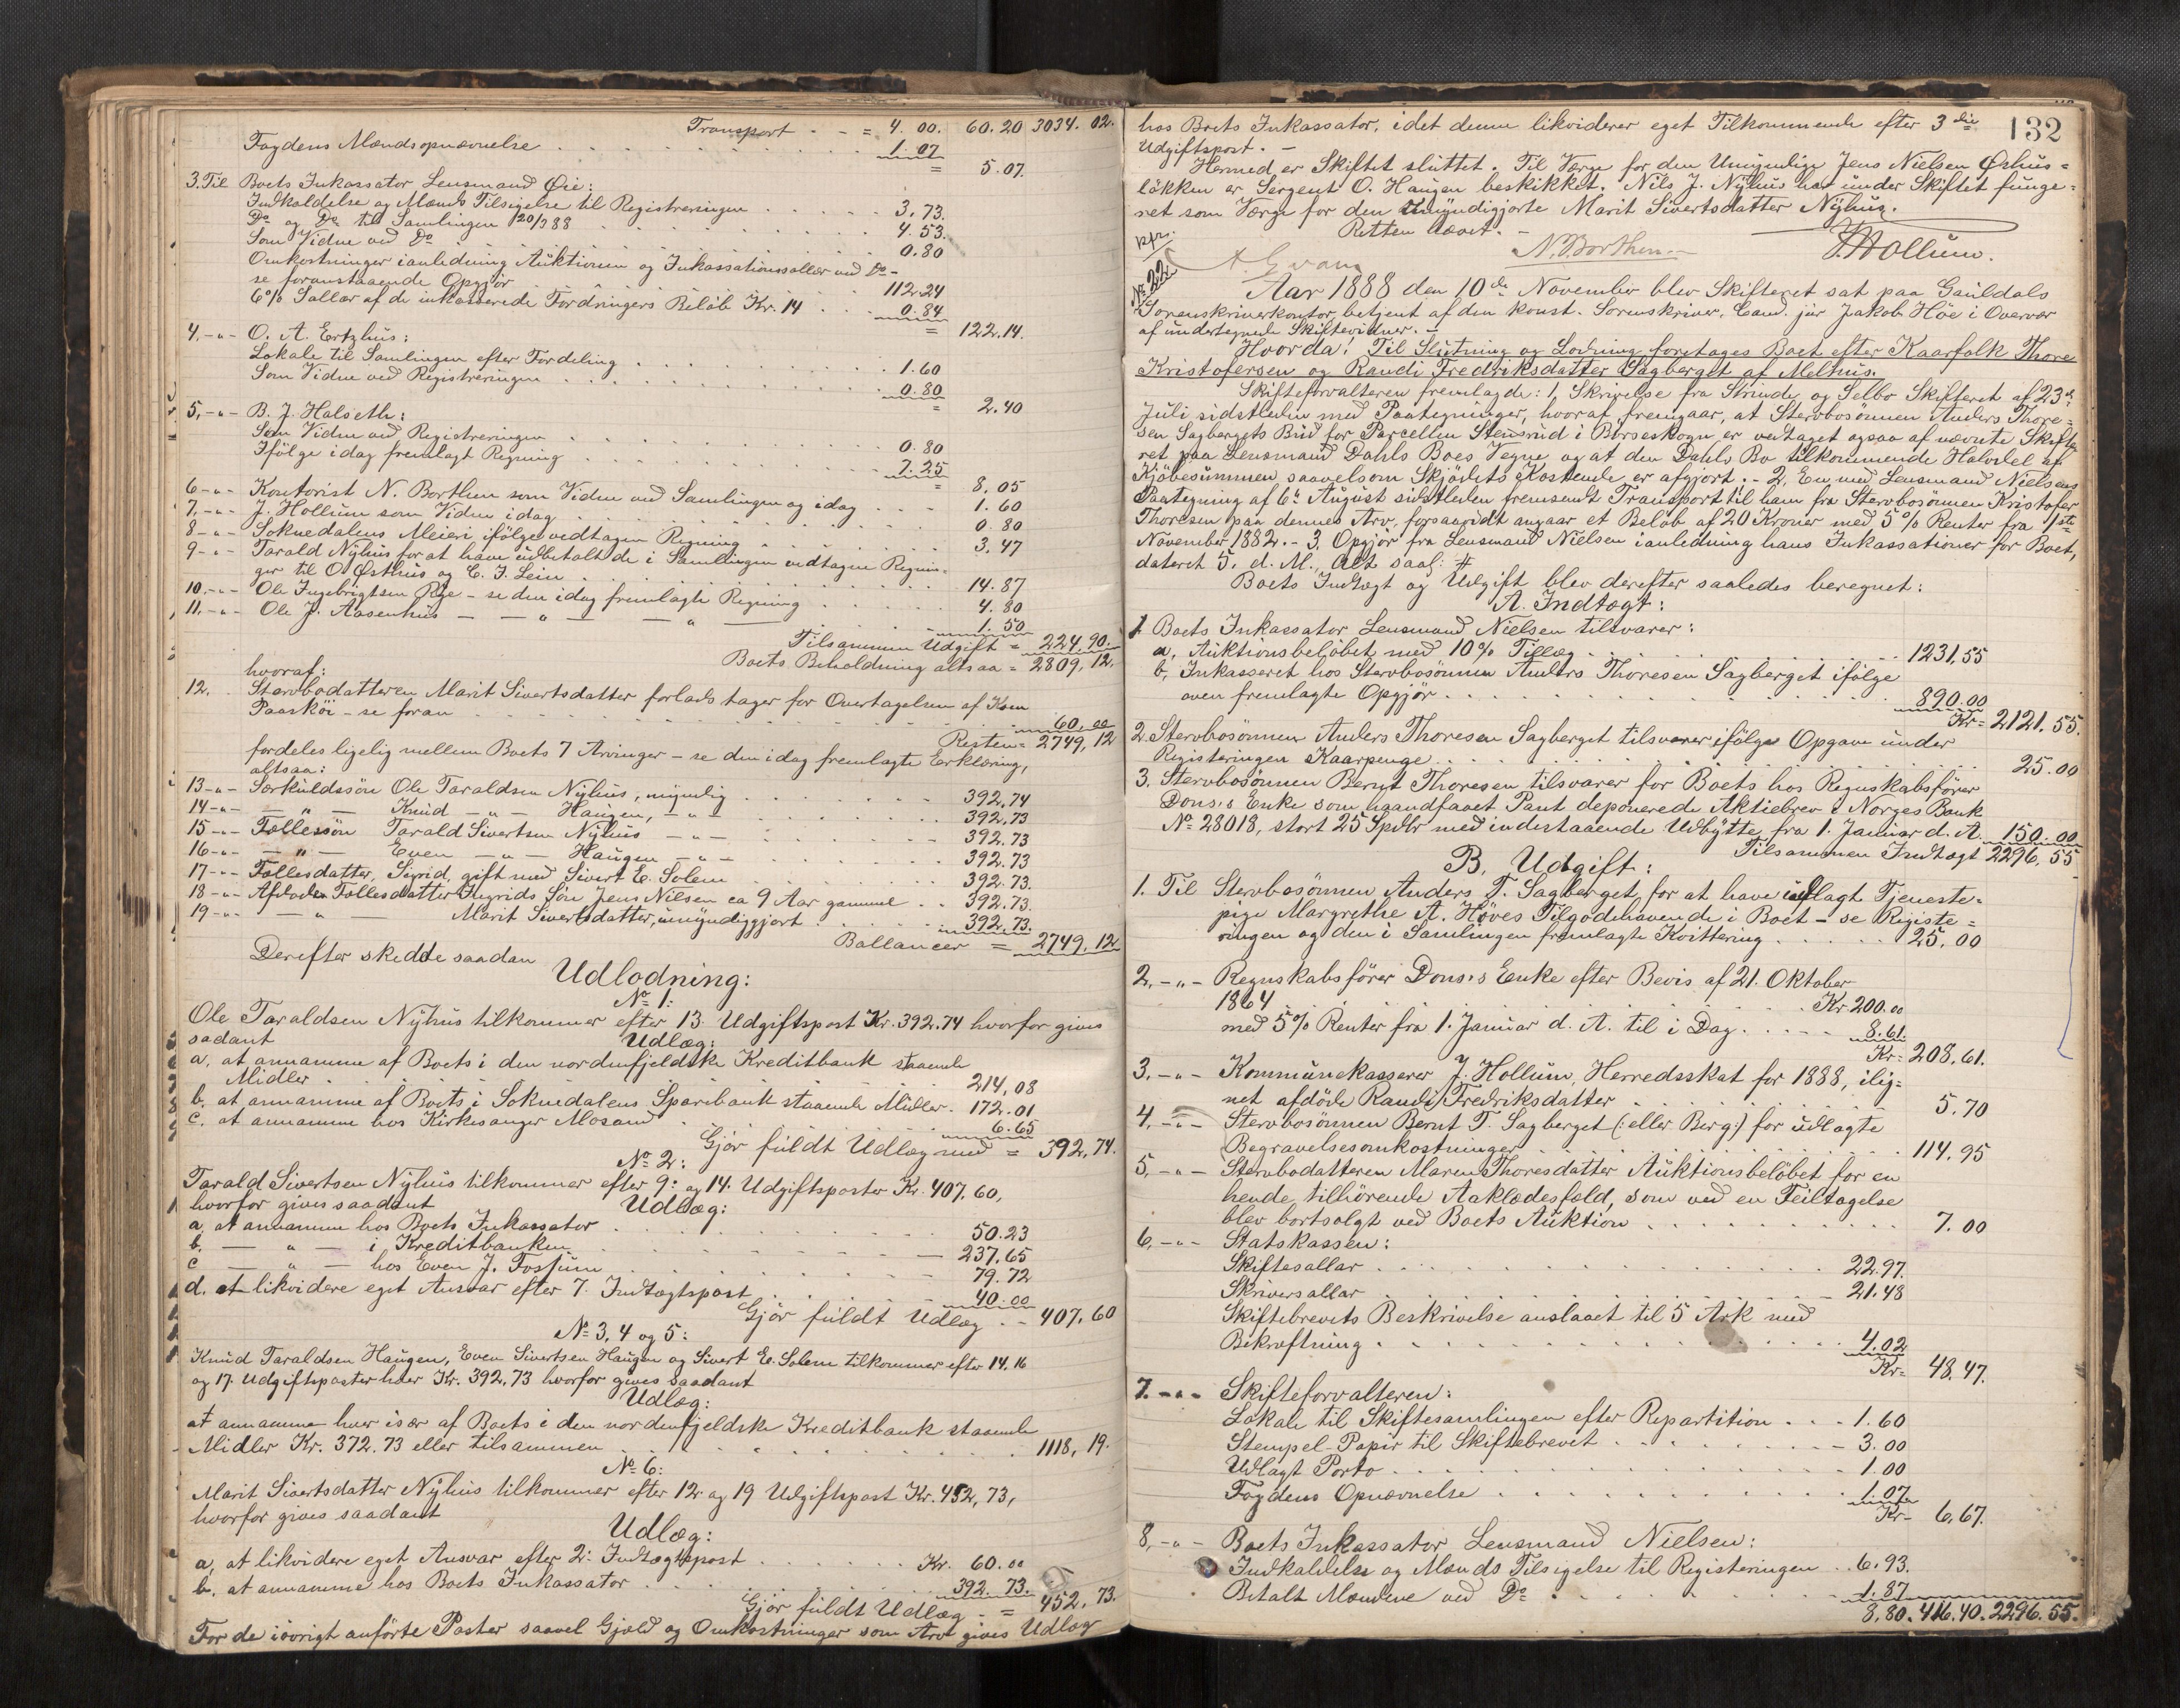 Transport . - = 4. 00. 60. 20 3034. 02.
Fogdens Mændsopnævnelse . . . . . . 1. 07
= 5. 07.
3. Til Boets Inkassator Lensmand Øie:
Indkaldelse og Mænds Tilsigelse til Registreringen . . . . 3, 73.
Do og Do til Samlingen 20/9 88 . . . . 4. 53.
Som Vidne ved Do . . . . 0. 80
Omkostninger i anledning Auktionen og Inkassationssallær ved Do -
se foranstaaende Opgjör . . . . 112. 24
6% Sallær af de inkasserede Fordringers Beløb Kr. 14 . . . 0. 84
= 122, 14.
4, -"- O. A. Ertzhus:
Lokale til Samlingen efter Fordeling . . . . 1. 60
Som Vidne ved Registreringen . . . . 0. 80
= 2. 40
5, -"- B. J. Halseth:
Som Vidne ved Registreringen . . . . 0. 80
Ifölge idag fremlagt Regning . . . . 7. 25
= 8, 05
6 -"- Kontorist N. Borthen som Vidne ved Samlingen og idag . . . 1. 60
7, -"- J. Hollum som Vidne idag . . . . 0. 80
8 -"- Soknedalens Meieri ifölge vedtagen Regning . . . . 3, 47
9 -"- Tarald Nyhus for at have udbetalt de i Samlingen vedtagne Regnin-
ger til O. Østhus og E. J. Lein . . . . 14. 87
10. -"- Ole Ingebrigtsen Rye - se den idag fremlagte Regning . . . . 4. 80
11, -"- Ole J. Aasenhus — — " — — " — . . 1. 50
Tilsammen Udgift = 224, 90.
Boets Beholdning altsaa = 2809, 12.
hvoraf:
12. Stervbodatteren Marit Sivertsdatter forlods tager for Overtagelsen af Koen
Paasköi - se foran . . . . 60, 00
Resten = 2749, 12
fordeles ligelig mellem Boets 7 Arvinger - se den idag fremlagte Erklæring,
altsaa:
13 -"- Særkuldssön Ole Taraldsen Nyhus, myndig . . . . 392, 74
14 -"- — " — Knud — " — Haugen, — " — . . . . 392, 73
15 -"- Fællessön Tarald Sivertsen Nyhus — " — . . . . 392. 73
16 -"- — " — Even — " — Haugen — " — . . . . 392. 73
17 -"- Fællesdatter, Sigrid, gift med Sivert E. Solem . . . . 392. 73.
18 -"- Afdöde Fællesdatter Ingrids Sön Jens Nilsen ca 9 Aar gammel . . 392. 73.
19 -"- — " — Marit Sivertsdatter, umyndiggjort . . . . 392. 73.
Ballancer = 2749, 12
Derefter skedde saadan
Udlodning:
No 1:
Ole Taraldsen Nyhus tilkommer efter 13. Udgiftspost Kr. 392. 74 hvorfor gives
sadant Udlæg:
a, at annamme af Boets i den nordenfjeldske Kreditbank staaende
Midler . . . . 214, 08
b, at annamme af Boets i Soknedalens Sparebank staaende Midler . 172. 01
c. at annamme hos Kirkesanger Mosand . . . . 6. 65
Gjör fuldt Udlæg med = 392, 74.
No 2:
Tarald Sivertsen Nyhus tilkommer efter 9: og 14. Udgiftsposter Kr. 407, 60,
hvorfor gives saadant Udlæg:
a, at annamme hos Boets Inkassator . . . . 50. 23
b. — " — i Kreditbanken . . . . 237, 65
c — " — hos Even J. Fossum . . . . 79. 72
d. at likvidere eget Ansvar efter 7. Indtægtspost . . . . 40. 00
Gjör fuldt Udlæg . - 407, 60
No 3, 4 og 5:
Knud Taraldsen Haugen, Even Sivertsen Haugen og Sivert E. Solem tilkommer efter 14. 16
og 17 Udgiftsposter hver Kr. 392, 73 hvorfor gives saadant
Udlæg:
at annamme hver især af Boets i den nordenfjeldske Kreditbank staaende
Midler Kr. 372. 73 eller tilsammen . . . . 1118, 19.
No 6:
Marit Sivertsdatter Nyhus tilkommer efter 12 og 19 Udgiftspost Kr. 452, 73,
hvorfor gives saadant
Udlæg:
a, at likvidere eget Ansvar efter 2: Indtægtspost . . . . Kr. 60. 00
b, at annamme hos Boets Inkassator . . . . 392. 73.
Gjör fuldt Udlæg - = 452, 73.
For de iövrigt anförte Poster saavel Gjæld og Omkostninger som Arv gives Udlæg
132
hos Boets Inkassator, idet denne likviderer eget Tilkommende efter 3die
Udgiftspost. -
Hermed er Skiftet sluttet. Til Værge for den Umyndige Jens Nielsen Øshus-
lökken er Sergent O. Haugen beskikket. Nils J. Nyhus har under Skiftet funge-
ret som Værge for den Umyndigjorte Marit Sivertsdatter Nyhus.
Retten hævet. -
N. Borthen. J. Hollum.
No 22
Aar 1888 den 10de November blev Skifteret sat paa Guldals
Sorenskriverkontor, betjent af den konst. Sorenskriver, Cand. jur Jakob Höe i Overvær
af undertegnede Skiftevidner. -
Hvorda! Til Slutning og Lodning foretages Boet efter Kaarfolk Thore
Kristofersen og Randi Fredriksdatter Sagberget af Melhus.
Skifteforvalteren fremlagde: 1, Skrivelse fra Strinde og Selbo Skifteret af 23de
Juli sidstleden med Paategninger, hvoraf fremgaar, at Stervbosönnen Anders Thore-
sen Sagbergets Bud for Parcellen Stensrud i Börseskogn er vedtaget ogsaa af nævnte Skifte-
ret paa Lensmand Dahls Boes Vegne og at den Dahls Bo tilkommende Halvdel af
Kjöbesummen saavelsom Skjödets Kostende er afgjort. - 2, En med Lensmand Nielsens
Paategning af 6te August sidstleden fremsendt Transport til ham fra Stervbosönnen Kristofer
Thoresen paa dennes Arv, forsaavidt angaar et Belöb af 20 Kroner med 5% Renter fra 1ste
November 1882. - 3, Opgjör fra Lensmand Nielsen i anledning hans Inkassationer for Boet,
dateret 5. d. M., Alt saal: #
Boets Indtægt og Udgift blev derefter saaledes beregnet:
A. Indtægt:
1 Boets Inkassator Lensmand Nielsen tilsvarer:
a, Auktionsbelöbet med 10% Tillæg . . . . 1231, 55
b, Inkasseret hos Stervbosönnen Anders Thoresen Sagberget ifölge
oven fremlagte Opgjör . . . . 890. 00
Kr = 2121. 55.
2. Stervbosönnen Anders Thoresen Sagberget tilsvarer ifölge Opgave under
Registeringen Kaarpenge . . . . 25. 00
3. Stervbosönnen Bernt Thoresen tilsvarer for Boets hos Regnskabsförer
Dons's Enke som haandfaaet Pant deponerede Aktiebrev i Norges Bank
No 28018, stort 25 Spdlr med indestaaende Udbytte fra 1. Januar d. A. 150. 00
Tilsammen Indtægt 2296, 55
B. Udgift:
1. Til Stervbosönnen Anders T. Sagberget, for at have udlagt Tjeneste-
pige Margrethe A. Höves Tilgodehavende i Boet - se Registe-
ringen og den i Samlingen fremlagte Kvittering . . . . 25, 00
2, -"- Regnskabsförer Dons's Enke efter Bevis af 21. Oktober
1864 . . . . Kr 200. 00
med 5% Renter fra 1. Januar d. A. til i Dag . . . . 8. 61
Kr = 208, 61.
3, -"- Kommunekasserer J. Hollum, Herredsskat for 1888, ilig-
net afdöde Randi Fredriksdatter . . . . 5. 70
4, -"- Stervbosönnen Bernt T. Sagberget (: eller Berg:) for udlagte
Begravelsesomkostninger . . . . 114. 95
5, -"- Stervbodatteren Maren Thoresdatter Auktionsbelöbet for en
hende tilhörende Aaklædesfæld, som ved en Feiltagelse
blev bortsolgt ved Boets Auktion . . . . 7. 00
6, -"- Statskassen:
Skiftesallær . . . . 22. 97.
Skriversallær . . . . 21. 48
Skiftebrevets Beskrivelse anslaaet til 5 Ark med
Bekræftning . . . . 4. 02
Kr = 48, 47.
7. -"- Skifteforvalteren:
Lokale til Skiftesamlingen efter Repartition . . . 1. 60
Stempel-Papir til Skiftebrevet . . . . 3. 00
Udlagt Porto . . . . 1. 00
Fogdens Opnævnelse . . . . 1. 07
Kr - 6, 67.
8, -"- Boets Inkassator Lensmand Nielsen:
Indkaldelse og Mænds Tilsigelse til Registeringen . . 6. 93.
Betalt Mændene ved Do . . . . 1. 87
8, 80. 416. 40. 2296. 55.